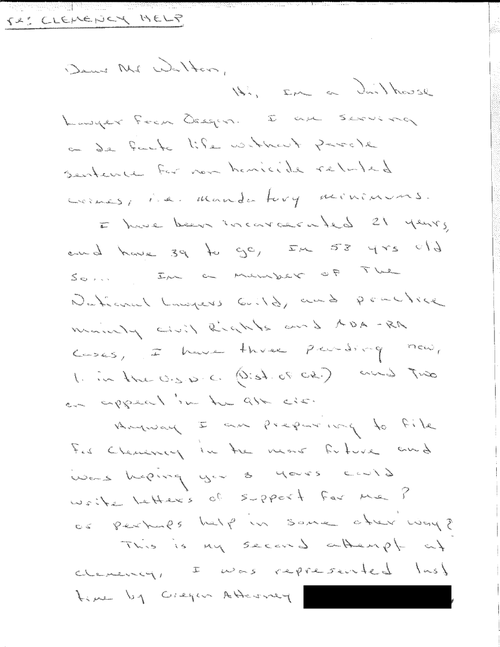 re: CLEMENCY HELP
Dear Mr Walton,
Hi, Im a Jailhouse
Lawyer from Oregon. I am serving
a de facto life without parole
sentence for non homicide related
crimes, i.e. mandatory minimums.
I have been incarcerated 21 years,
and have 39 to go, Im 53 yrs old
so... Im a member of The
National Lawyers Guild, and practice
mainly civil Rights and ADA-RA
cases, I have three pending now,
1. in the U.S.D.C. (Dist. of OR.) and Two
on appeal in the 9th cir.
Anyway I am preparing to file
for Clemency in the near future and
was hoping you & yours could
write letters of support for me?
or perhaps help in some other way?
This is my second attempt at
clemency, I was represented last
time by Oregon Attorney